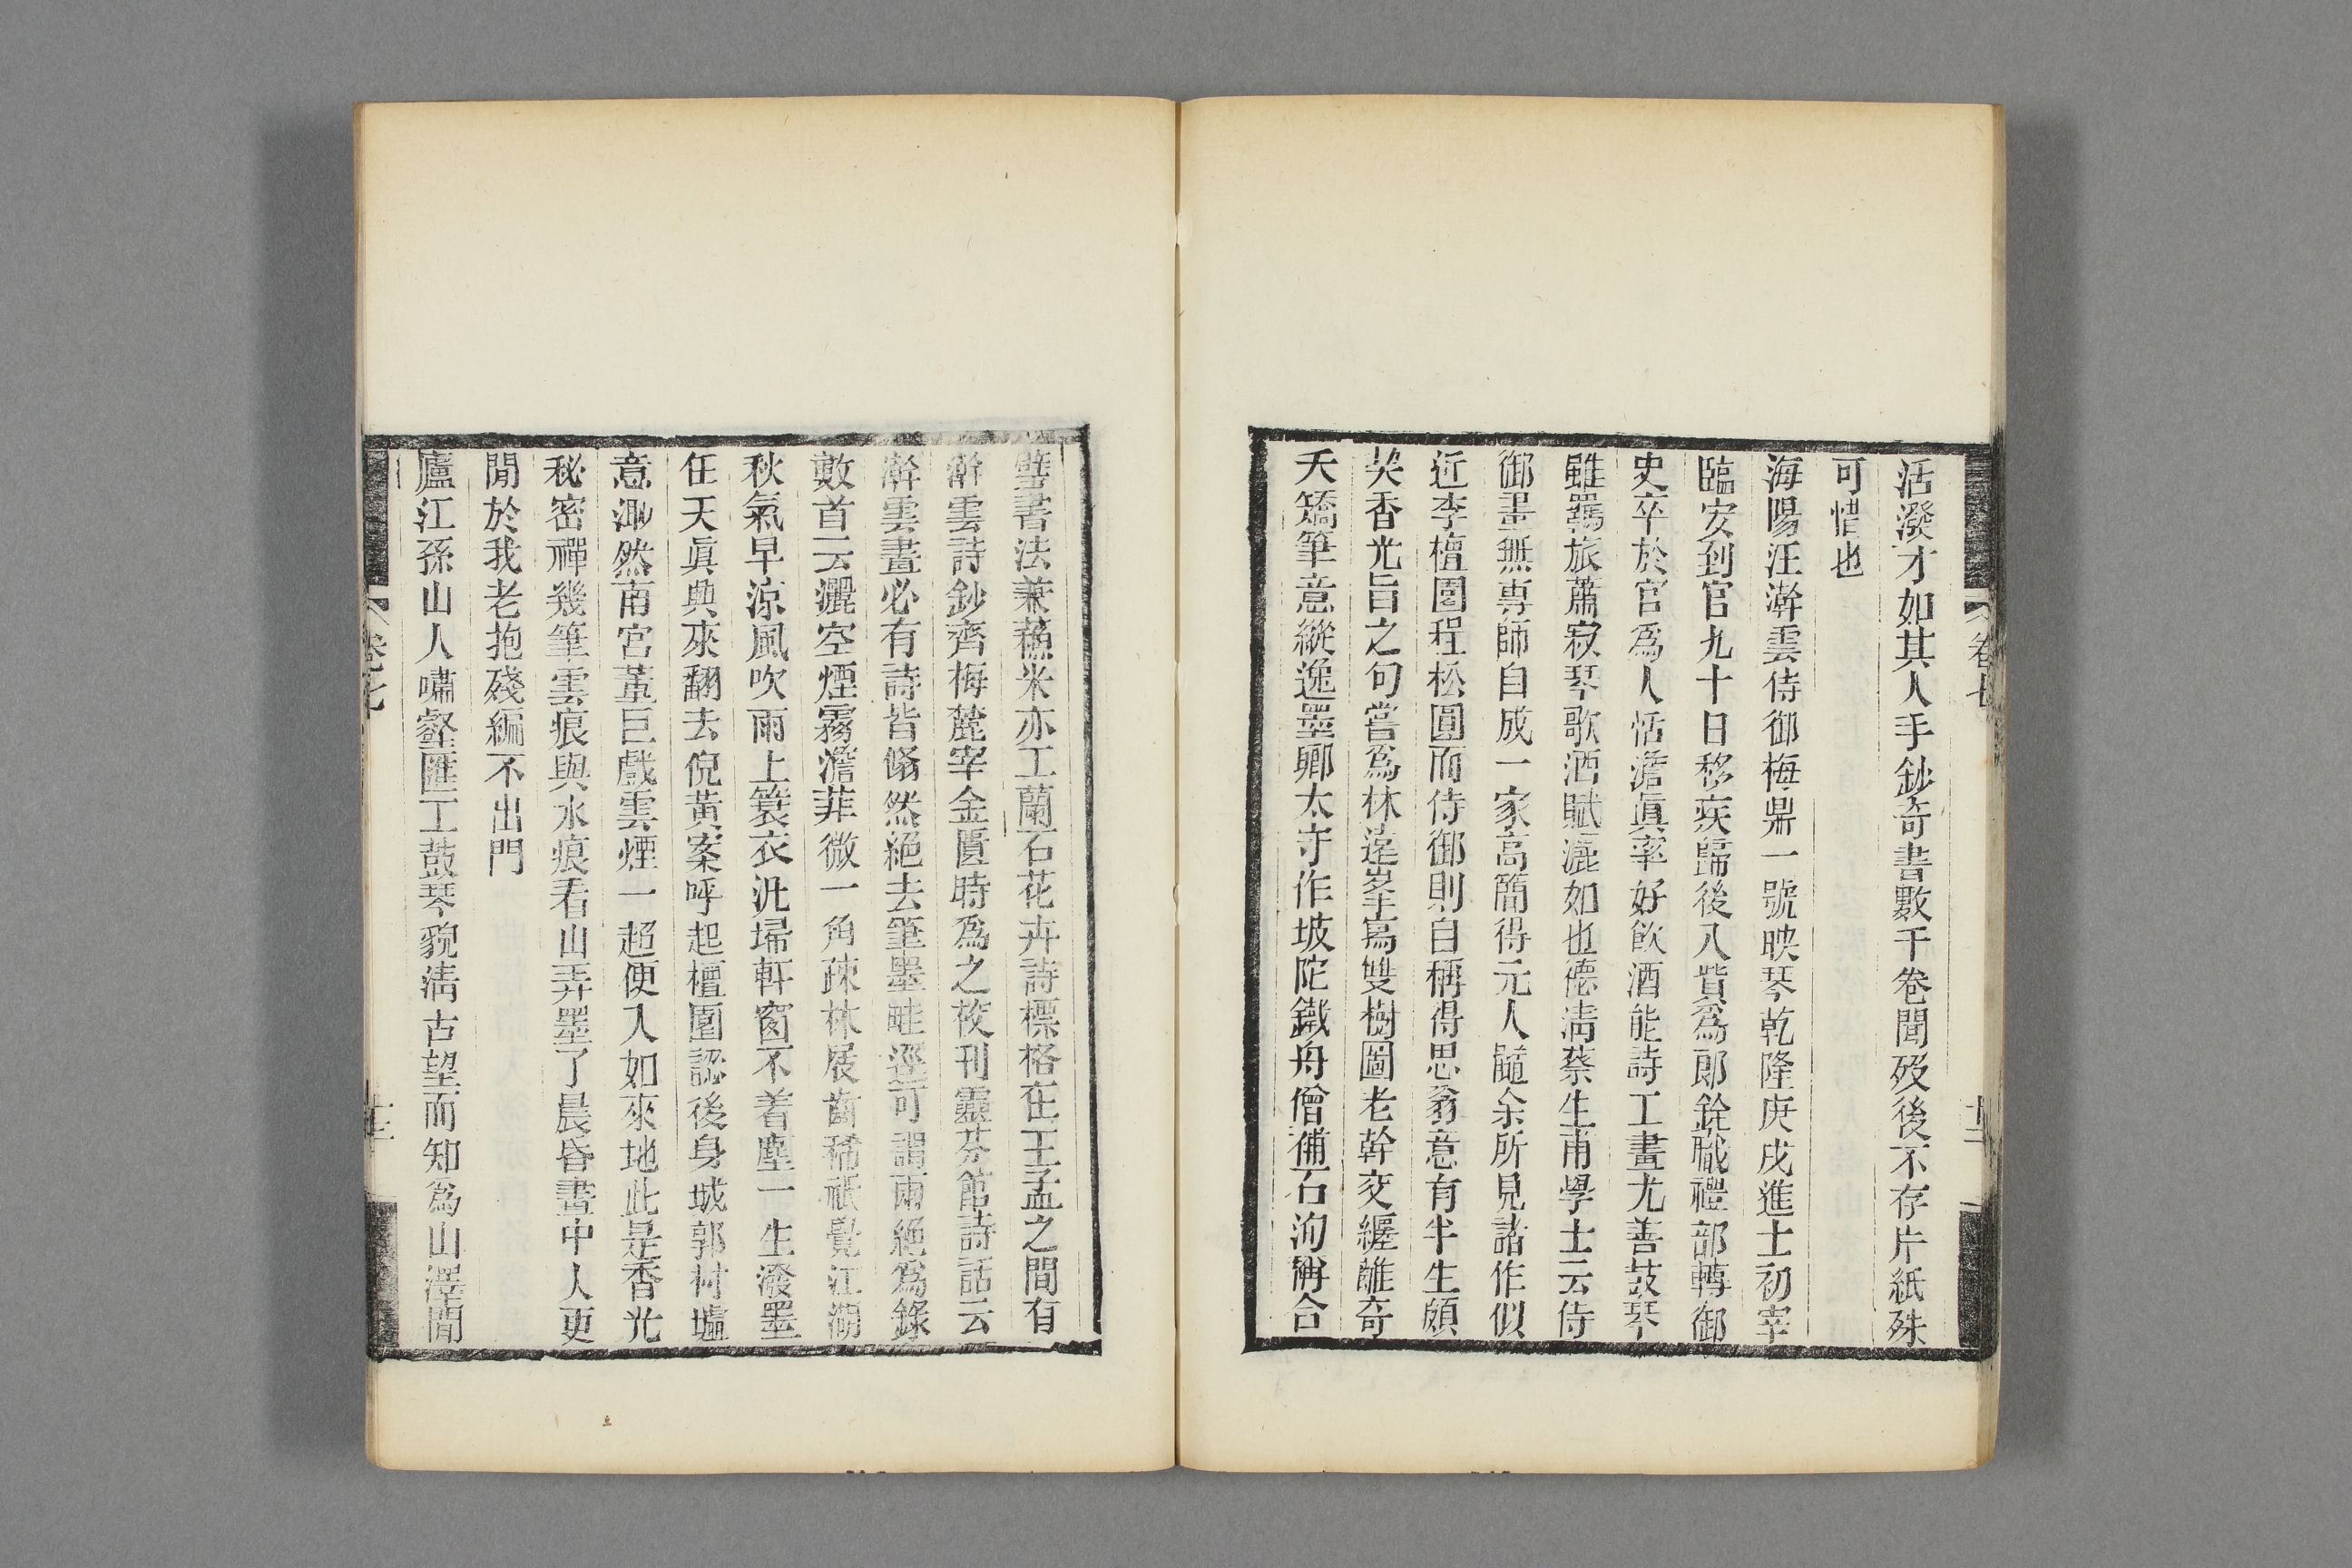 活潑才如其人手鈔奇書數千卷聞歿後不存片紙殊
可惜也
海陽汪澣雲侍御梅鼎一號映琴乾隆庚戌進士初宰
臨安到官九十日移疾歸後入貲爲郎銓職禮部轉御
史卒於官爲人恬澹眞率好飲酒能詩工畫尤善鼓琴
雖羈旅蕭寂琴歌酒賦灑如也德淸蔡生甫學士云侍
御畫無專師自成一家高簡得元人髓余所見諸作似
近李檀園程松圓而侍御則自稱得思翁意有半生頗
契香光旨之句嘗爲林遠峯寫雙樹圖老幹交纒離奇
夭矯筆意縱逸墨卿太守作坡陀鐵舟僧補石洵稱合
璧書法兼蘓米亦工蘭石花卉詩標格在王孟之間有
澣雲詩鈔齊梅麓宰金匱時爲之挍刊靈芬館詩話云
澣雲畫必有詩皆翛然絕去筆墨畦逕可謂兩絕爲錄
數首云灑空煙霧澹菲微一角疎林展齒稀祇覺江湖
秋氣早涼風吹雨上簑衣汎埽軒窗不着塵一生潑墨
任天眞典來翻去倪黃案呼起檀園認後身城郭村墟
意渺然南宮董巨戲雲煙一超便入如來地此是香光
秘密禪幾筆雲痕與水痕看山弄墨了晨昏畫中人更
閒於我老抱殘編不出門
廬江孫山人嘯壑匯工鼓琴貌淸古望而知爲山澤間
卷七
卷七
十三